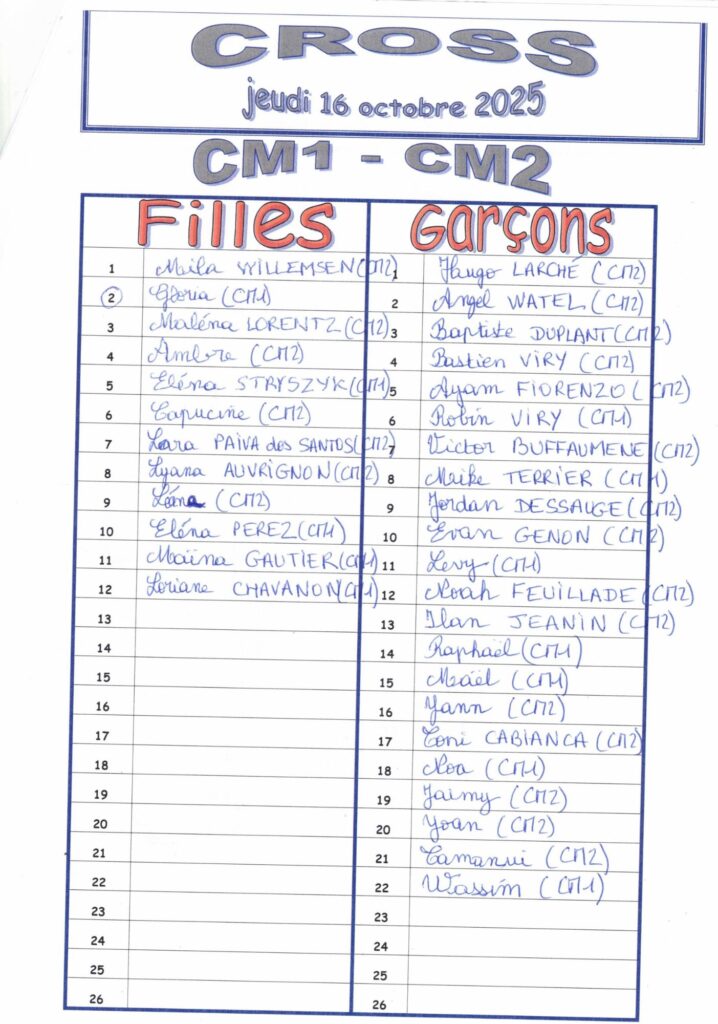 CROSS
jeudi 16 octobre 2025
CM1 - CM2
Filles
1 Mila WILLEMSEN (CM2)
2 Gloria (CM1)
3 Maléna LORENTZ (CM2)
4 Ambre (CM2)
5 Eléna STRYSZYK (CM1)
6 Capucine (CM2)
7 Lara PAIVA dos SANTOS (CM2)
8 Lyana AUVRIGNON (CM2)
9 Léna (CM2)
10 Eléna PEREZ (CM1)
11 Maïna GAUTIER (CM1)
12 Loriane CHAVANON (CM1)
13
14
15
16
17
18
19
20
21
22
23
24
25
26
Garçons
1 Hugo LARCHÉ (CM2)
2 Angel WATEL (CM2)
3 Baptiste DUPLANT (CM2)
4 Bastien VIRY (CM2)
5 Ayam FIORENZO (CM2)
6 Robin VIRY (CM1)
7 Victor BUFFAUMENE (CM2)
8 Meike TERRIER (CM1)
9 Jordan DESSAUGE (CM2)
10 Evan GENON (CM2)
11 Levy (CM1)
12 Noah FEUILLADE (CM2)
13 Ilan JEANIN (CM2)
14 Raphaël (CM1)
15 Maël (CM1)
16 Yann (CM2)
17 Toni CABIANCA (CM2)
18 Noa (CM1)
19 Jaimy (CM2)
20 Yoan (CM2)
21 Tamanui (CM2)
22 Wassim (CM1)
23
24
25
26